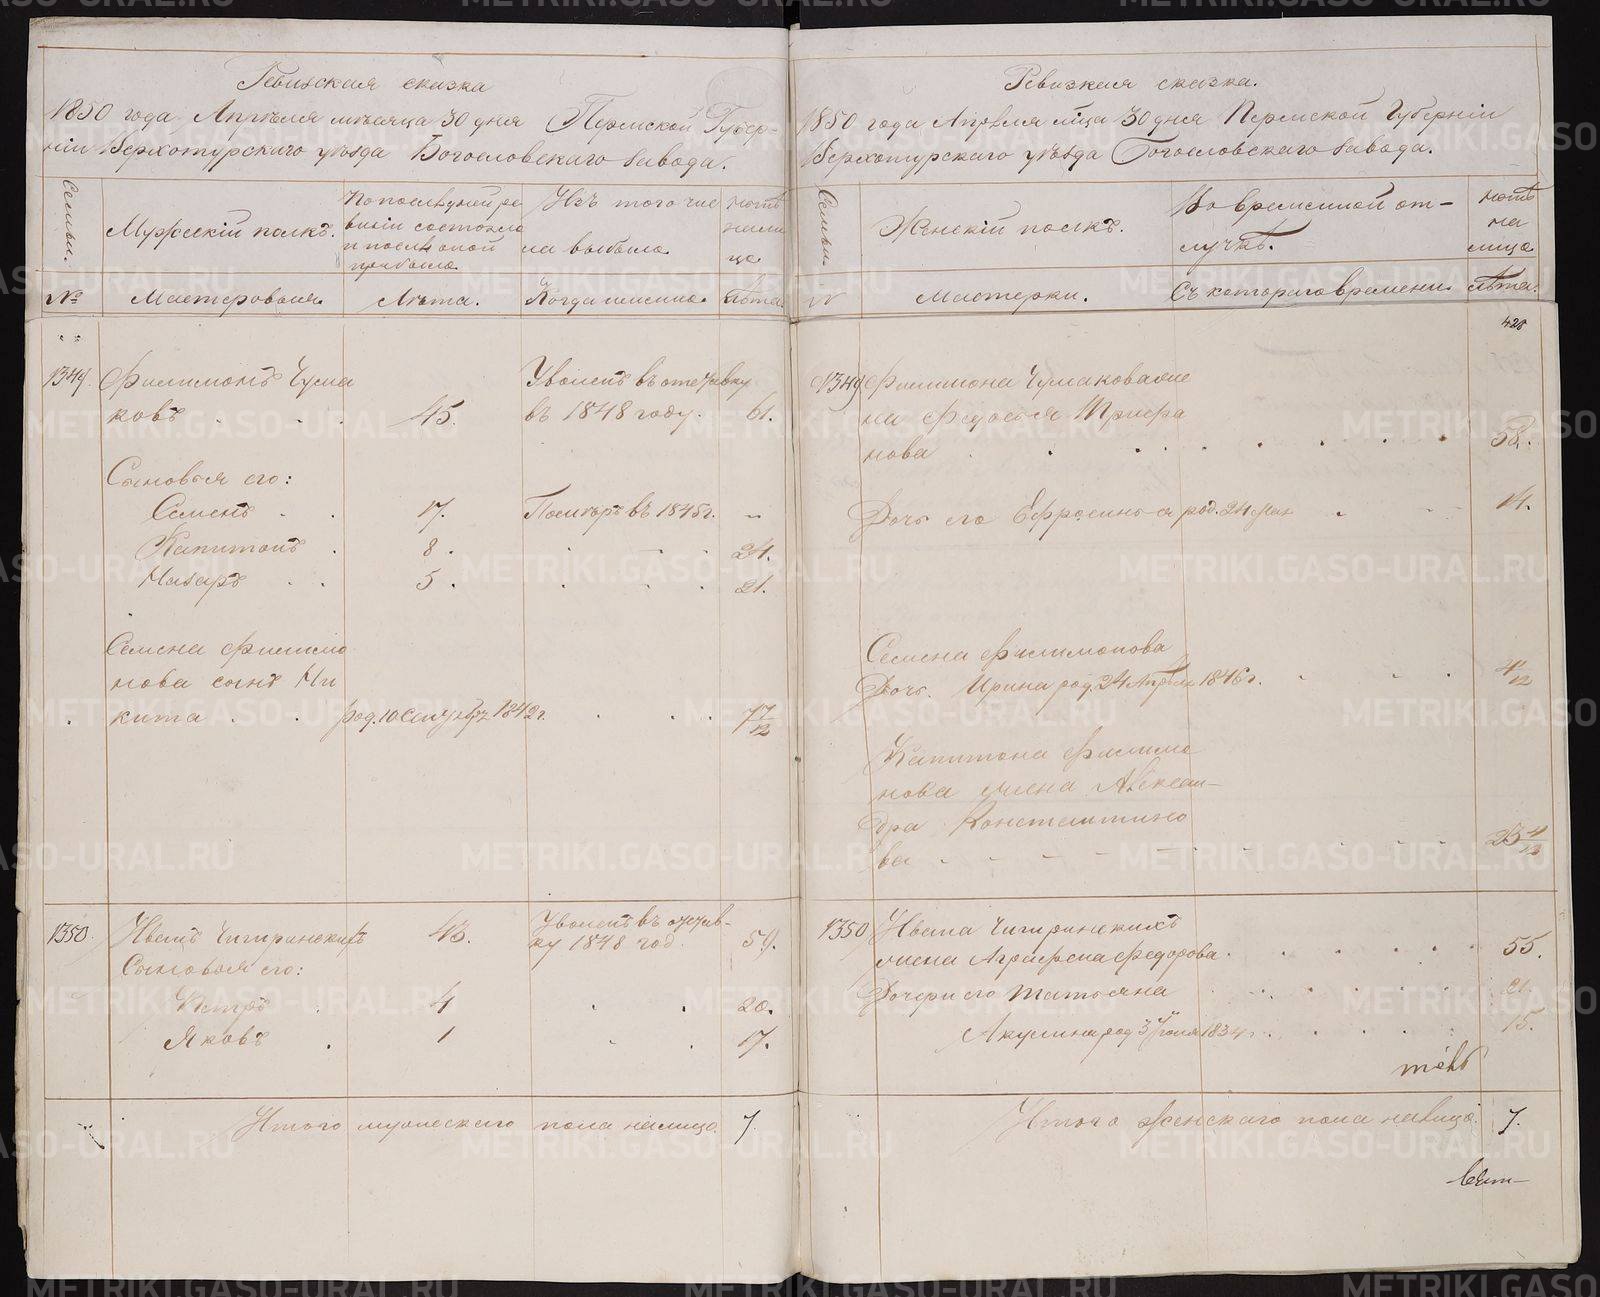 Ревизская сказка
1850 года Апреля месяца 30 дня Пермской Губер-
нiи Верхотурскаго уезда Богословскаго завода.
Семьи.
Мужескiй полъ.
По последней ре
визiи состояло
и после оной
прибыло
Изъ того чис
ла выбыло
ныне
нали
це
№
Мастеровыя
Лета.
Когда именно.
Лета.
1349.
Филимонъ Чума
ковъ
45.
Уволенъ въ отставку
въ 1848 году.
61.
Сыновья его:
Семенъ
17.
Померъ въ 1845 г.
Капитонъ
8.
24.
Назаръ
5.
21.
Семена Филимо
нова сынъ Ни
кита
род. 10 Сентября 1842 г.
7 7/12
1350.
Иванъ Чигринскихъ
43.
Уволенъ въ отстав-
ку 1848 год.
59.
Сыновья его:
Петръ
4
20.
Яковъ
1
17.
Итого мужескаго пола налицо.
7.
Ревизкая сказка.
1850 года Апреля м-ца 30 дня Пермской Губернiи
Верхотурскаго уезда Богословскаго завода.
Семьи.
Женскiй полъ.
Во временной от-
лучке.
ныне
на
лицо
№
Мастерки.
Съ котораго времени.
Лета.
428
1349
Филимона Чумакова же
на Федосья Трифа
нова
58.
Дочь его Ефросинья род. 24 мая
14.
Семена Филимонова
Дочь Ирина род. 24 Апреля 1846 г.
4/12
Капитона Филимо
нова жена Алексан-
дра Константино
ва
23 4/12
1350
Ивана Чигринскихъ
жена Агрифена Федорова
55.
Дочери его Татьяна
21.
Акулина род 3 Iюня 1834 г.
15.
Итого Женскаго пола налицо.
7.
METRIKI.GASO-URAL.RU